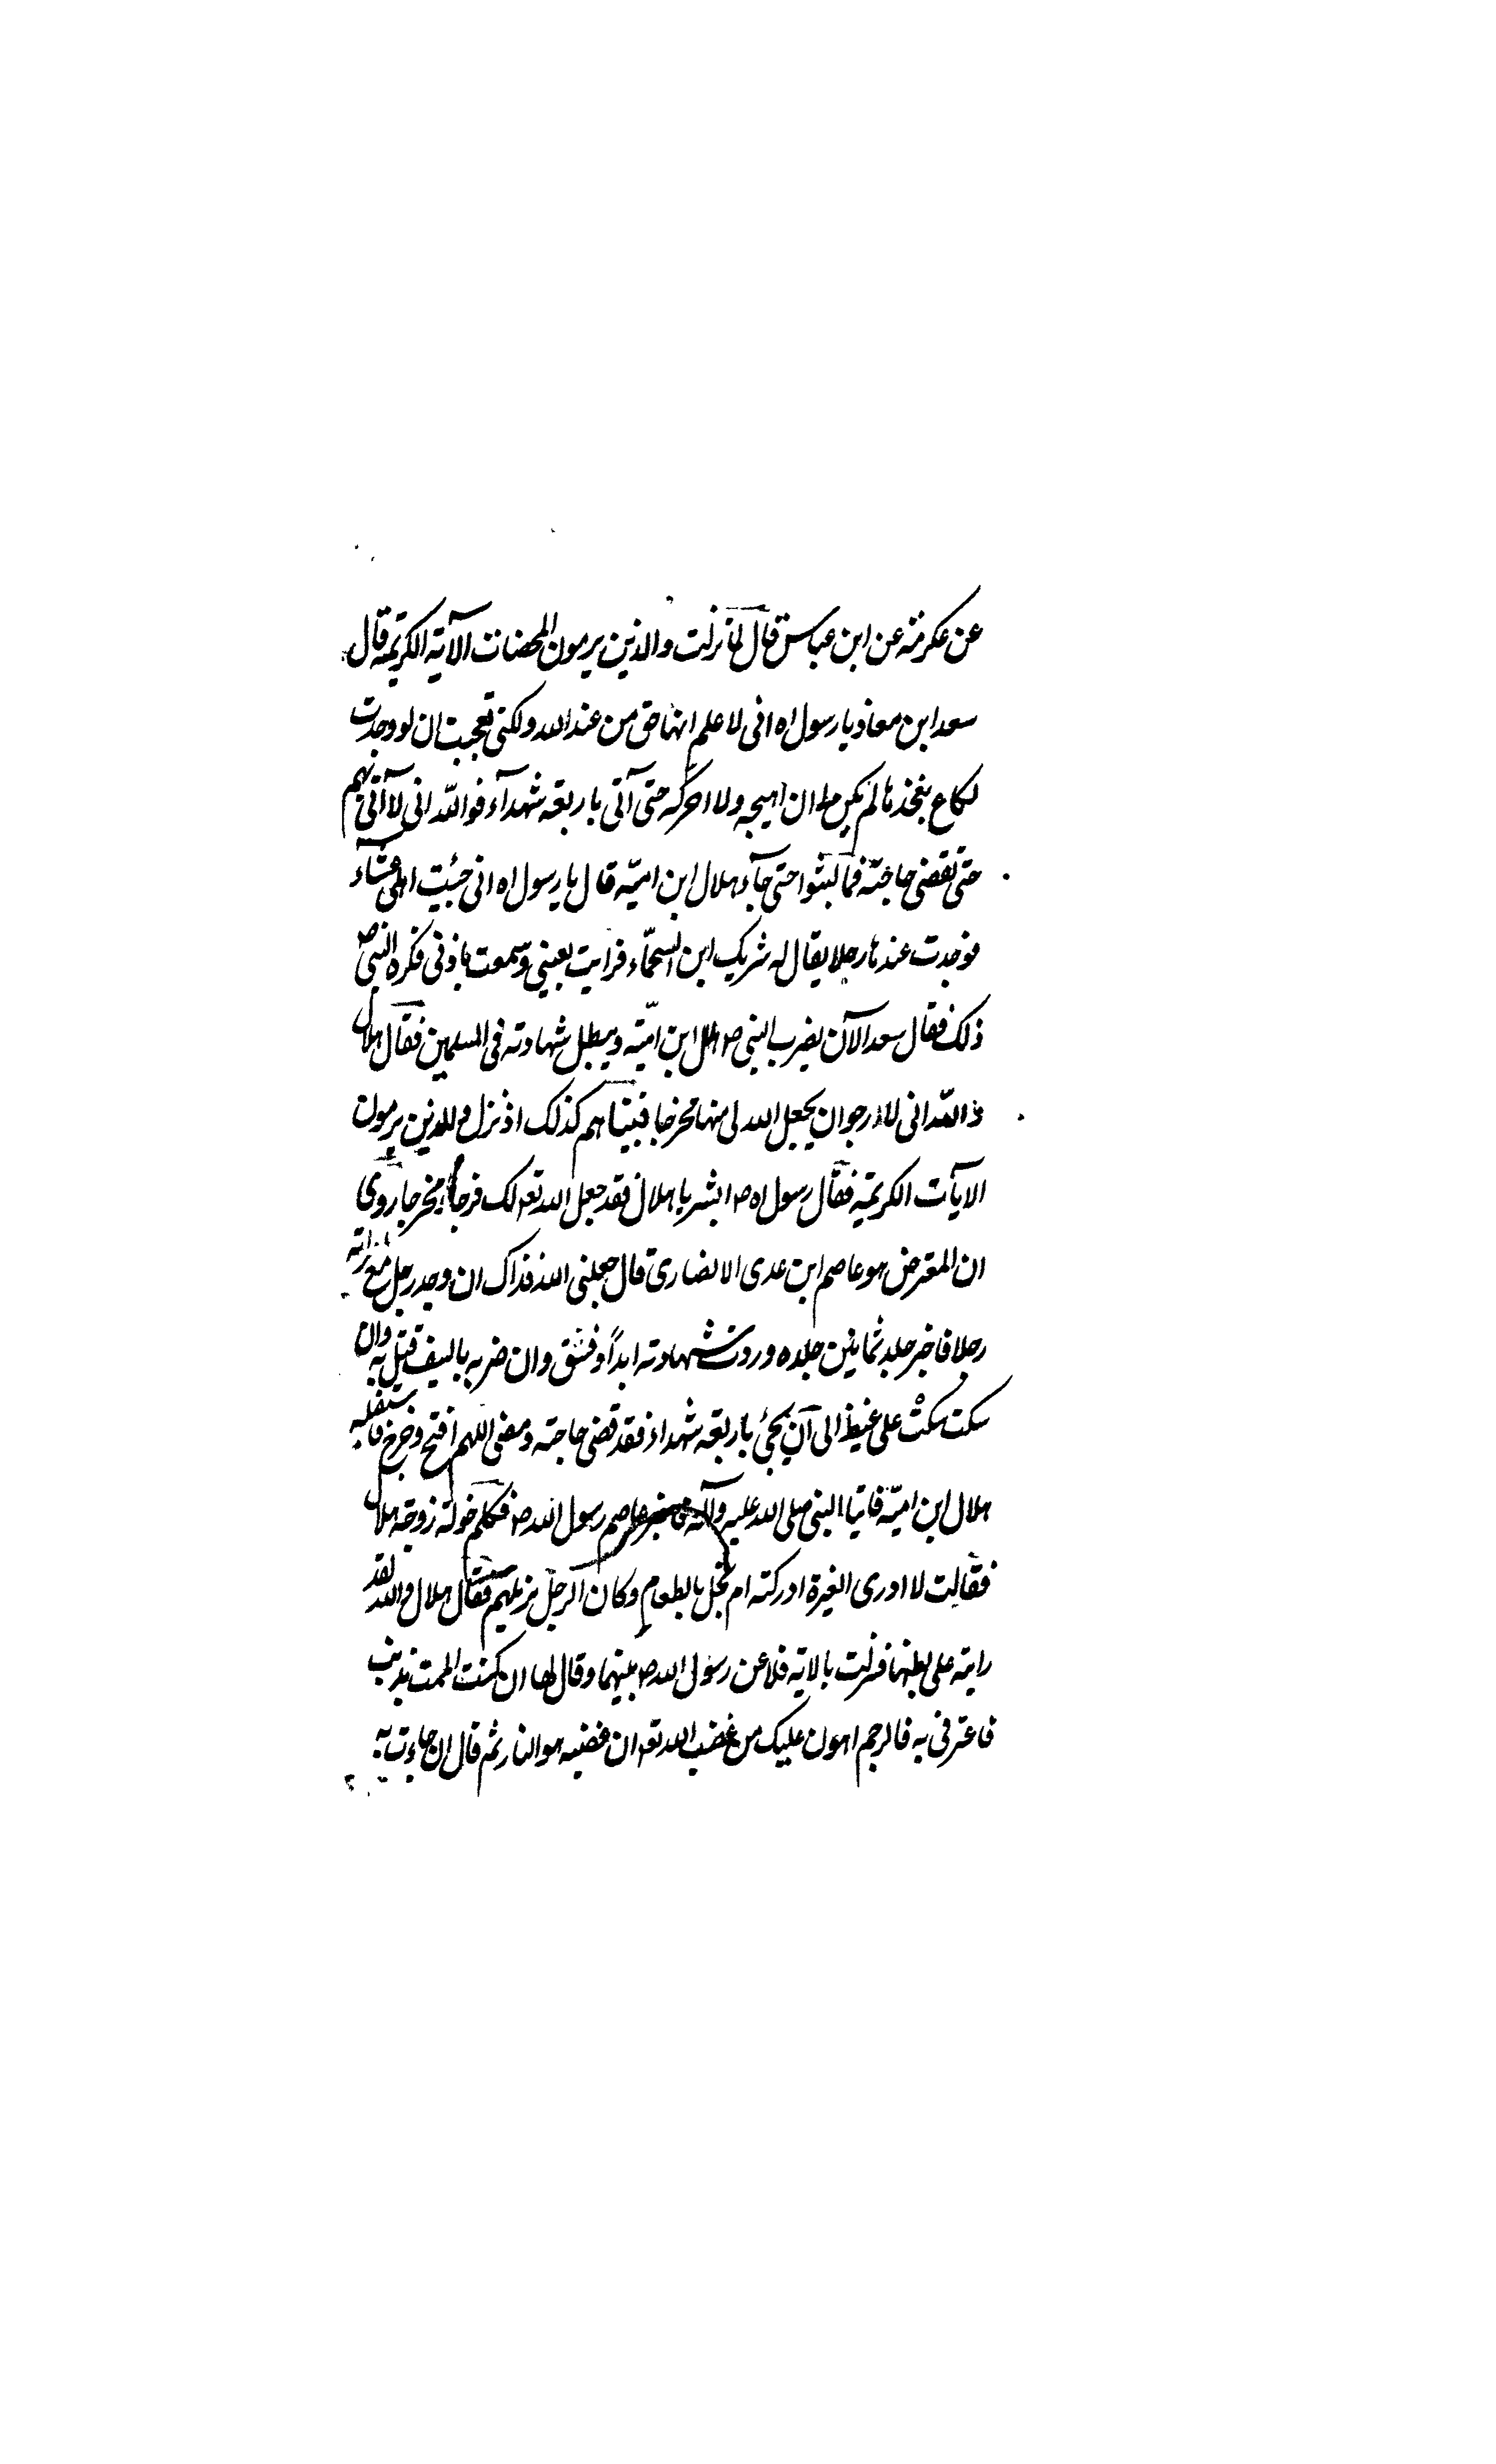 عن عكرمة عن ابن عباس قال لما نزلت والذين يرمون المحصنات الآية الكريمة قال
سعد ابن معاذ يا رسول اه انى لاعلم انها حق من عند الله ولكنى تعجبت ان لو وجدت
لكاع بفخذها لم يكن لى ان اهيجه ولا احركه حتى آتى باربعة شهدآء فوالله انى لا آتى بهم
حتى تقضى حاجته فما لبثوا حتى جآء هلال ابن امية قال يا رسول اه انى جئت اهلى عشآء
فوجدت عندها رجلا يقال له شريك ابن السحمآء فرايت بعينى وسمعت باذنى فكره النبى ص
ذلك فقال سعد الآن يضرب النبى ص هلال ابن امية ويبطل شهادته فى المسلمين فقال هلال
والله انى لارجو ان يجعل الله لى منها مخرجا فبينا هم كذلك اذ نزل والذين يرمون
الايآت الكريمة فقال رسول اه ص ابشر يا هلال فقد جعل الله تعه لك فرجا ومخرجا روى
ان المعترض هو عاصم ابن عدى الانصارى قال جعلنى الله فذاك ان وجد رجل مع امراته
رجلا فاخبر جلد ثمانين جلده وردت شهادته ابداً وفسق وان ضربه بالسيف قتل به وان
سكت سكت على غيظ الى آن يجئ باربعة شهداء فقد قضى حاجته ومضى اللهم افتح وخرج فاستقبله
هلال ابن امية فاتيا النبى صلى الله عليه وآله فاخبر عاصم رسول الله ص فكلم خولة زوجة هلال
فقالت لا ادرى الغيرة ادركته ام بخل بالطعام وكان الرجل نزيلهم فقال هلال والله لقد
رايته على بطنها فنزلت بالاية فلاعن رسول الله ص بينهما وقال لها ان كنت الممت بذنب
فاعترفى به فالرجم اهون عليك من غضب الله تعه ان غضبه هو النار ثم قال ان جاءت به